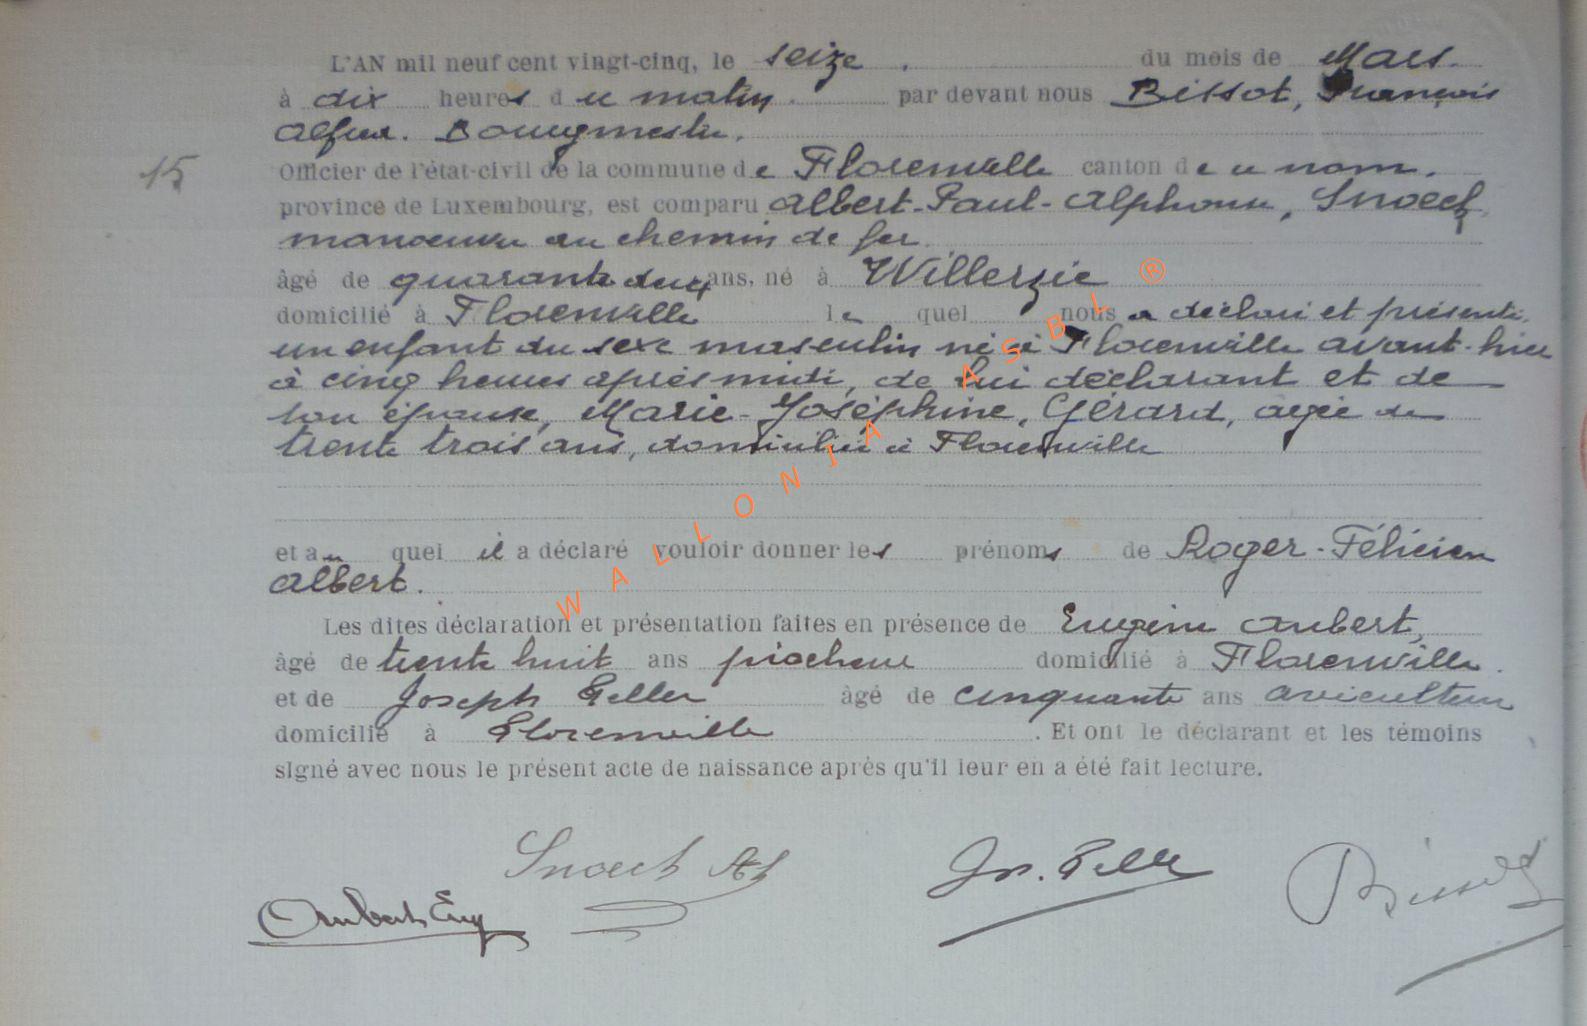 L'AN mil neuf cent vingt-cinq, le seize. du mois de Mars.
à dix heures du matin. par devant nous Bissot, François
Alfred. Bourgmestre.
15 Officier de l'état-civil de la commune de Florenville canton de ce nom.
province de Luxembourg, est comparu Albert-Paul-Alphonse, Snoeck,
manoeuvre au chemin de fer.
âgé de quarante deux ans, né à Willerzie
domicilié à Florenville lequel nous a déclaré et présenté
un enfant du sexe masculin né à Florenville avant-hier
à cinq heures après midi, de lui déclarant et de
son épouse, Marie-Joséphine, Gérard, agée de
trente trois ans, domiciliée à Florenville
et auquel il a déclaré vouloir donner les prénoms de Roger-Félicien
Albert.
Les dites déclaration et présentation faites en présence de Eugène Aubert,
âgé de trente huit ans piocheur domicilié à Florenville.
et de Joseph Peller âgé de cinquante ans aviculteur
domicilié à Florenville. Et ont le déclarant et les témoins
signé avec nous le présent acte de naissance après qu'il leur en a été fait lecture.
Snoeck Alb
Jos. Peller
Bissot
Aubert Eug
WALLONIA ASBL ®